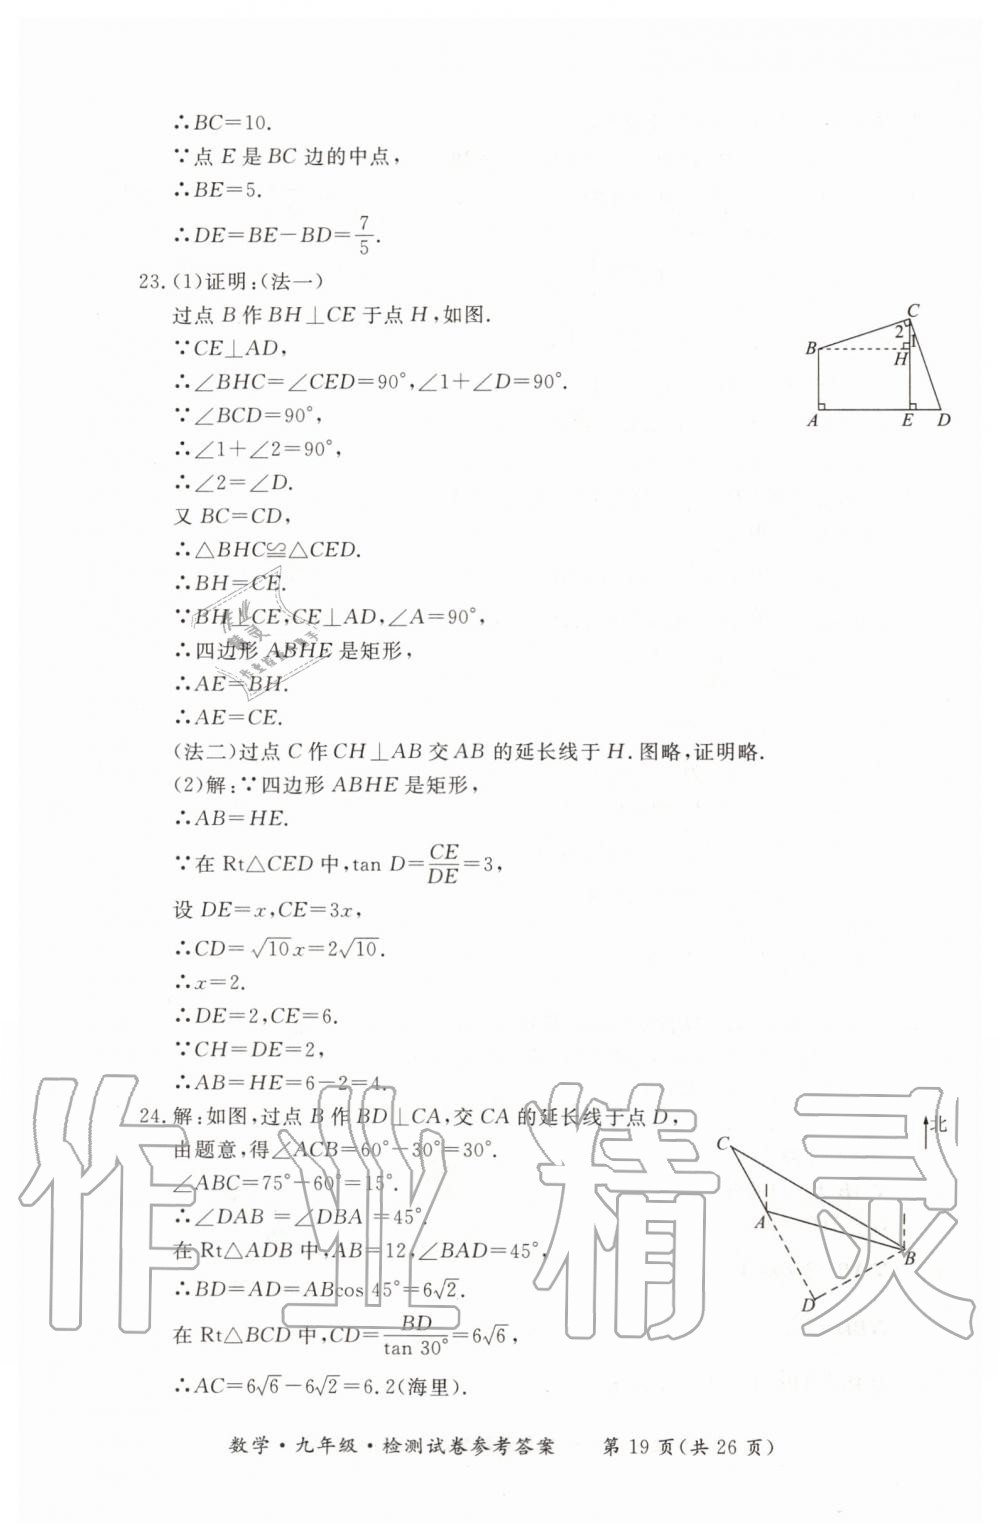 ∴BC=10.
∵点 E 是 BC 边的中点，
∴BE=5.
∴DE=BE−BD=7/5.
23. (1)证明：(法一)
过点 B 作 BH⊥CE 于点 H，如图.
∵CE⊥AD，
∴∠BHC=∠CED=90°，∠1+∠D=90°.
∵∠BCD=90°，
∴∠1+∠2=90°，
∴∠2=∠D.
又 BC=CD，
∴△BHC≌△CED.
∴BH=CE.
∵BH⊥CE，CE⊥AD，∠A=90°，
∴四边形 ABHE 是矩形，
∴AE=BH.
∴AE=CE.
(法二)过点 C 作 CH⊥AB 交 AB 的延长线于 H. 图略，证明略.
(2)解：∵四边形 ABHE 是矩形，
∴AB=HE.
∵在 Rt△CED 中，tan D=CE/DE=3，
设 DE=x，CE=3x，
∴CD=√10x=2√10.
∴x=2.
∴DE=2，CE=6.
∵CH=DE=2，
∴AB=HE=6−2=4.
C
2
1
B
H
A
E
D
24. 解：如图，过点 B 作 BD⊥CA，交 CA 的延长线于点 D，
由题意，得∠ACB=60°−30°=30°.
∠ABC=75°−60°=15°.
∴∠DAB=∠DBA=45°.
在 Rt△ADB 中，AB=12，∠BAD=45°，
∴BD=AD=ABcos 45°=6√2.
在 Rt△BCD 中，CD=BD/tan 30°=6√6，
∴AC=6√6−6√2=6.2(海里).
北
C
A
B
D
数学·九年级·检测试卷参考答案 第 19 页(共 26 页)
作业精灵
作业
精灵